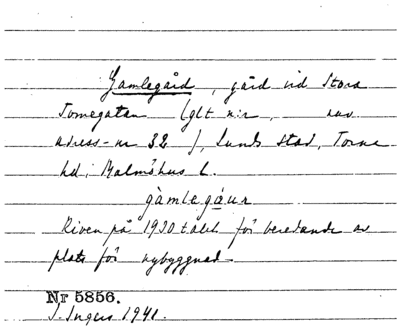 Gamlegård, gård vid Stora
Tomegatan (glt n:r , nuv
adress-nr 32 ), Lunds stad, Torna
hd, Malmöhus l.
gàmlegáur
Riven på 1930 talet för beredande av
plats för nybyggnad.
Nr 5856.
I. Ingers 1941.